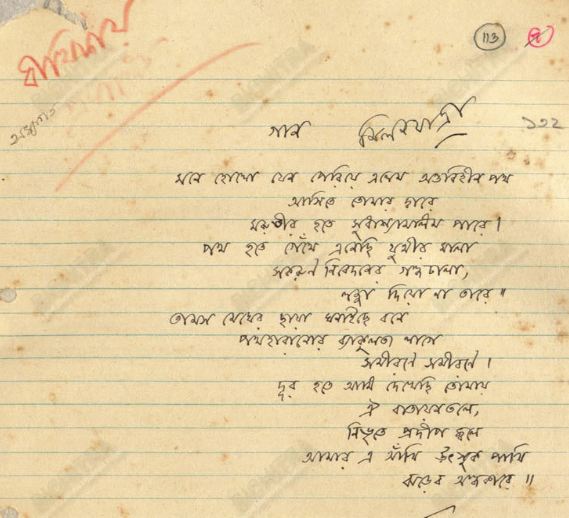 113
গান মিলনযাত্রা
১২২
মনে হোলো যেন পেরিয়ে এলেম অন্তবিহীন পথ
আসিতে তোমার দ্বারে
মরুতীর হতে সুধাশ্যামলিম পারে।
পথ হতে গেঁথে এনেছি যূথীর মালা
সকরুণ নিবেদনের গন্ধঢালা,
লজ্জা দিয়ো না তারে॥
সজল মেঘের ছায়া ঘনাইছে বনে
পথহারানোর ব্যাকুলতা লাগে
সমীরণে সমীরণে।
দূর হতে আমি দেখেছি তোমায়
ঐ বাতায়নতলে,
নিভৃতে প্রদীপ জ্বলে
আমার এ আঁখি উৎসুক পাখি
ঝড়ের অন্ধকারে॥